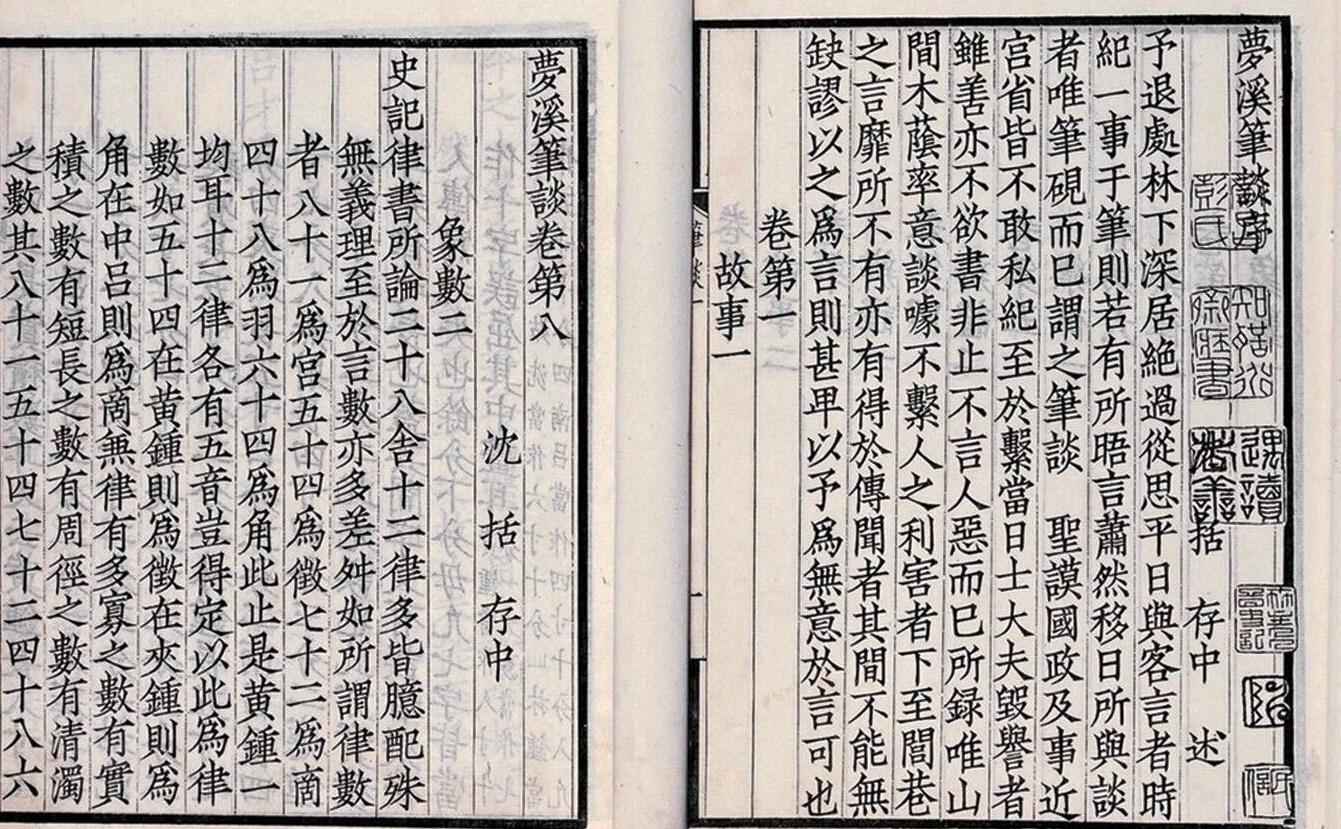 夢溪筆談序
沈括 存中 述
予退處林下深居絶過從思平日與客言者時
紀一事于筆則若有所晤言蕭然移日所與談
者唯筆硯而已謂之筆談 聖謨國政及事近
宮省皆不敢私紀至於繫當日士大夫毀譽者
雖善亦不欲書非止不言人惡而已所録唯山
間木蔭率意談噱不繫人之利害者下至閭巷
之言靡所不有亦有得於傳聞者其間不能無
缺謬以之爲言則甚卑以予爲無意於言可也
卷第一
故事一
夢溪筆談卷第八
沈 括 存中
象數二
史記律書所論二十八舍十二律多皆臆配殊
無義理至於言數亦多差舛如所謂律數
者八十一爲宮五十四爲徵七十二爲啇
四十八爲羽六十四爲角此止是黄鍾一
均耳十二律各有五音豈得定以此爲律
數如五十四在黄鍾則爲徵在夾鍾則爲
角在中吕則爲啇兼律有多寡之數有實
積之數有短長之數有周徑之數有清濁
之數其八十一五十四七十二四十八六